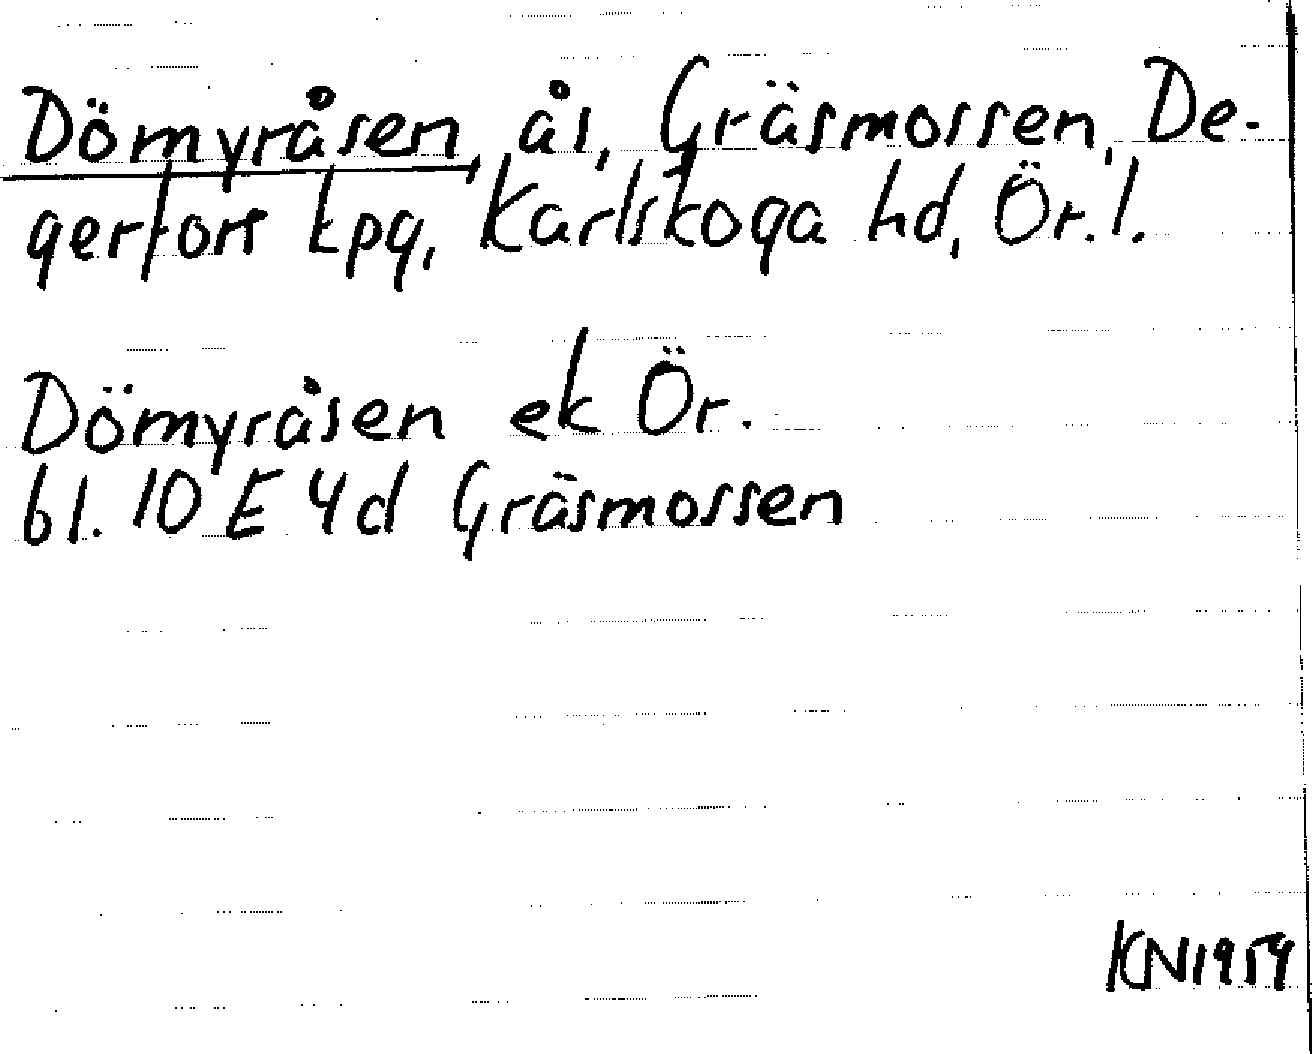 Dömyråsen, ås, Gräsmossen, De-
gerfors kpg, Karlskoga hd, Ör. l.
Dömyråsen ek Ör.
bl. 10 E 4d Gräsmossen
KN1959